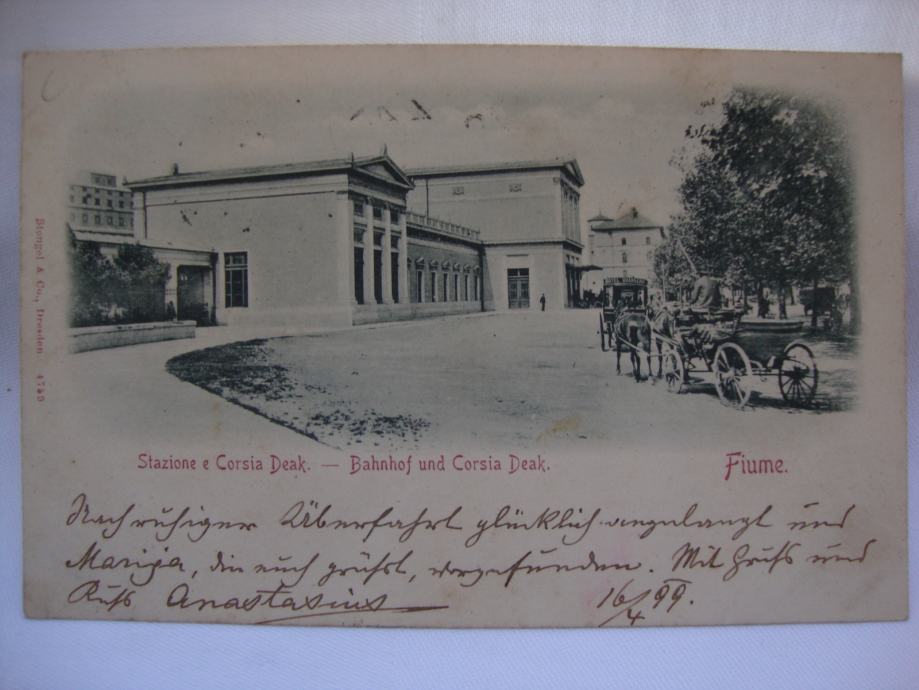 Stengel & Co., Dresden 4759
Stazione e Corsia Deak. — Bahnhof und Corsia Deak.
Fiume.
Nach ruhiger Überfahrt glücklich angelangt und
Marija, die euch grüßt, vorgefunden. Mit Gruß und
Kuß Anastasius 16/4 99.